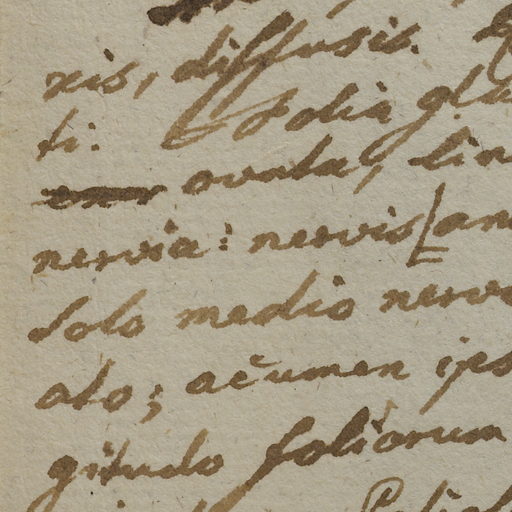 xis, diffusis.
ti. Folia gla
ovata, lin
nervia: nervis [an
solo medio nervo
ato; acumen ips
gitudo foliorum